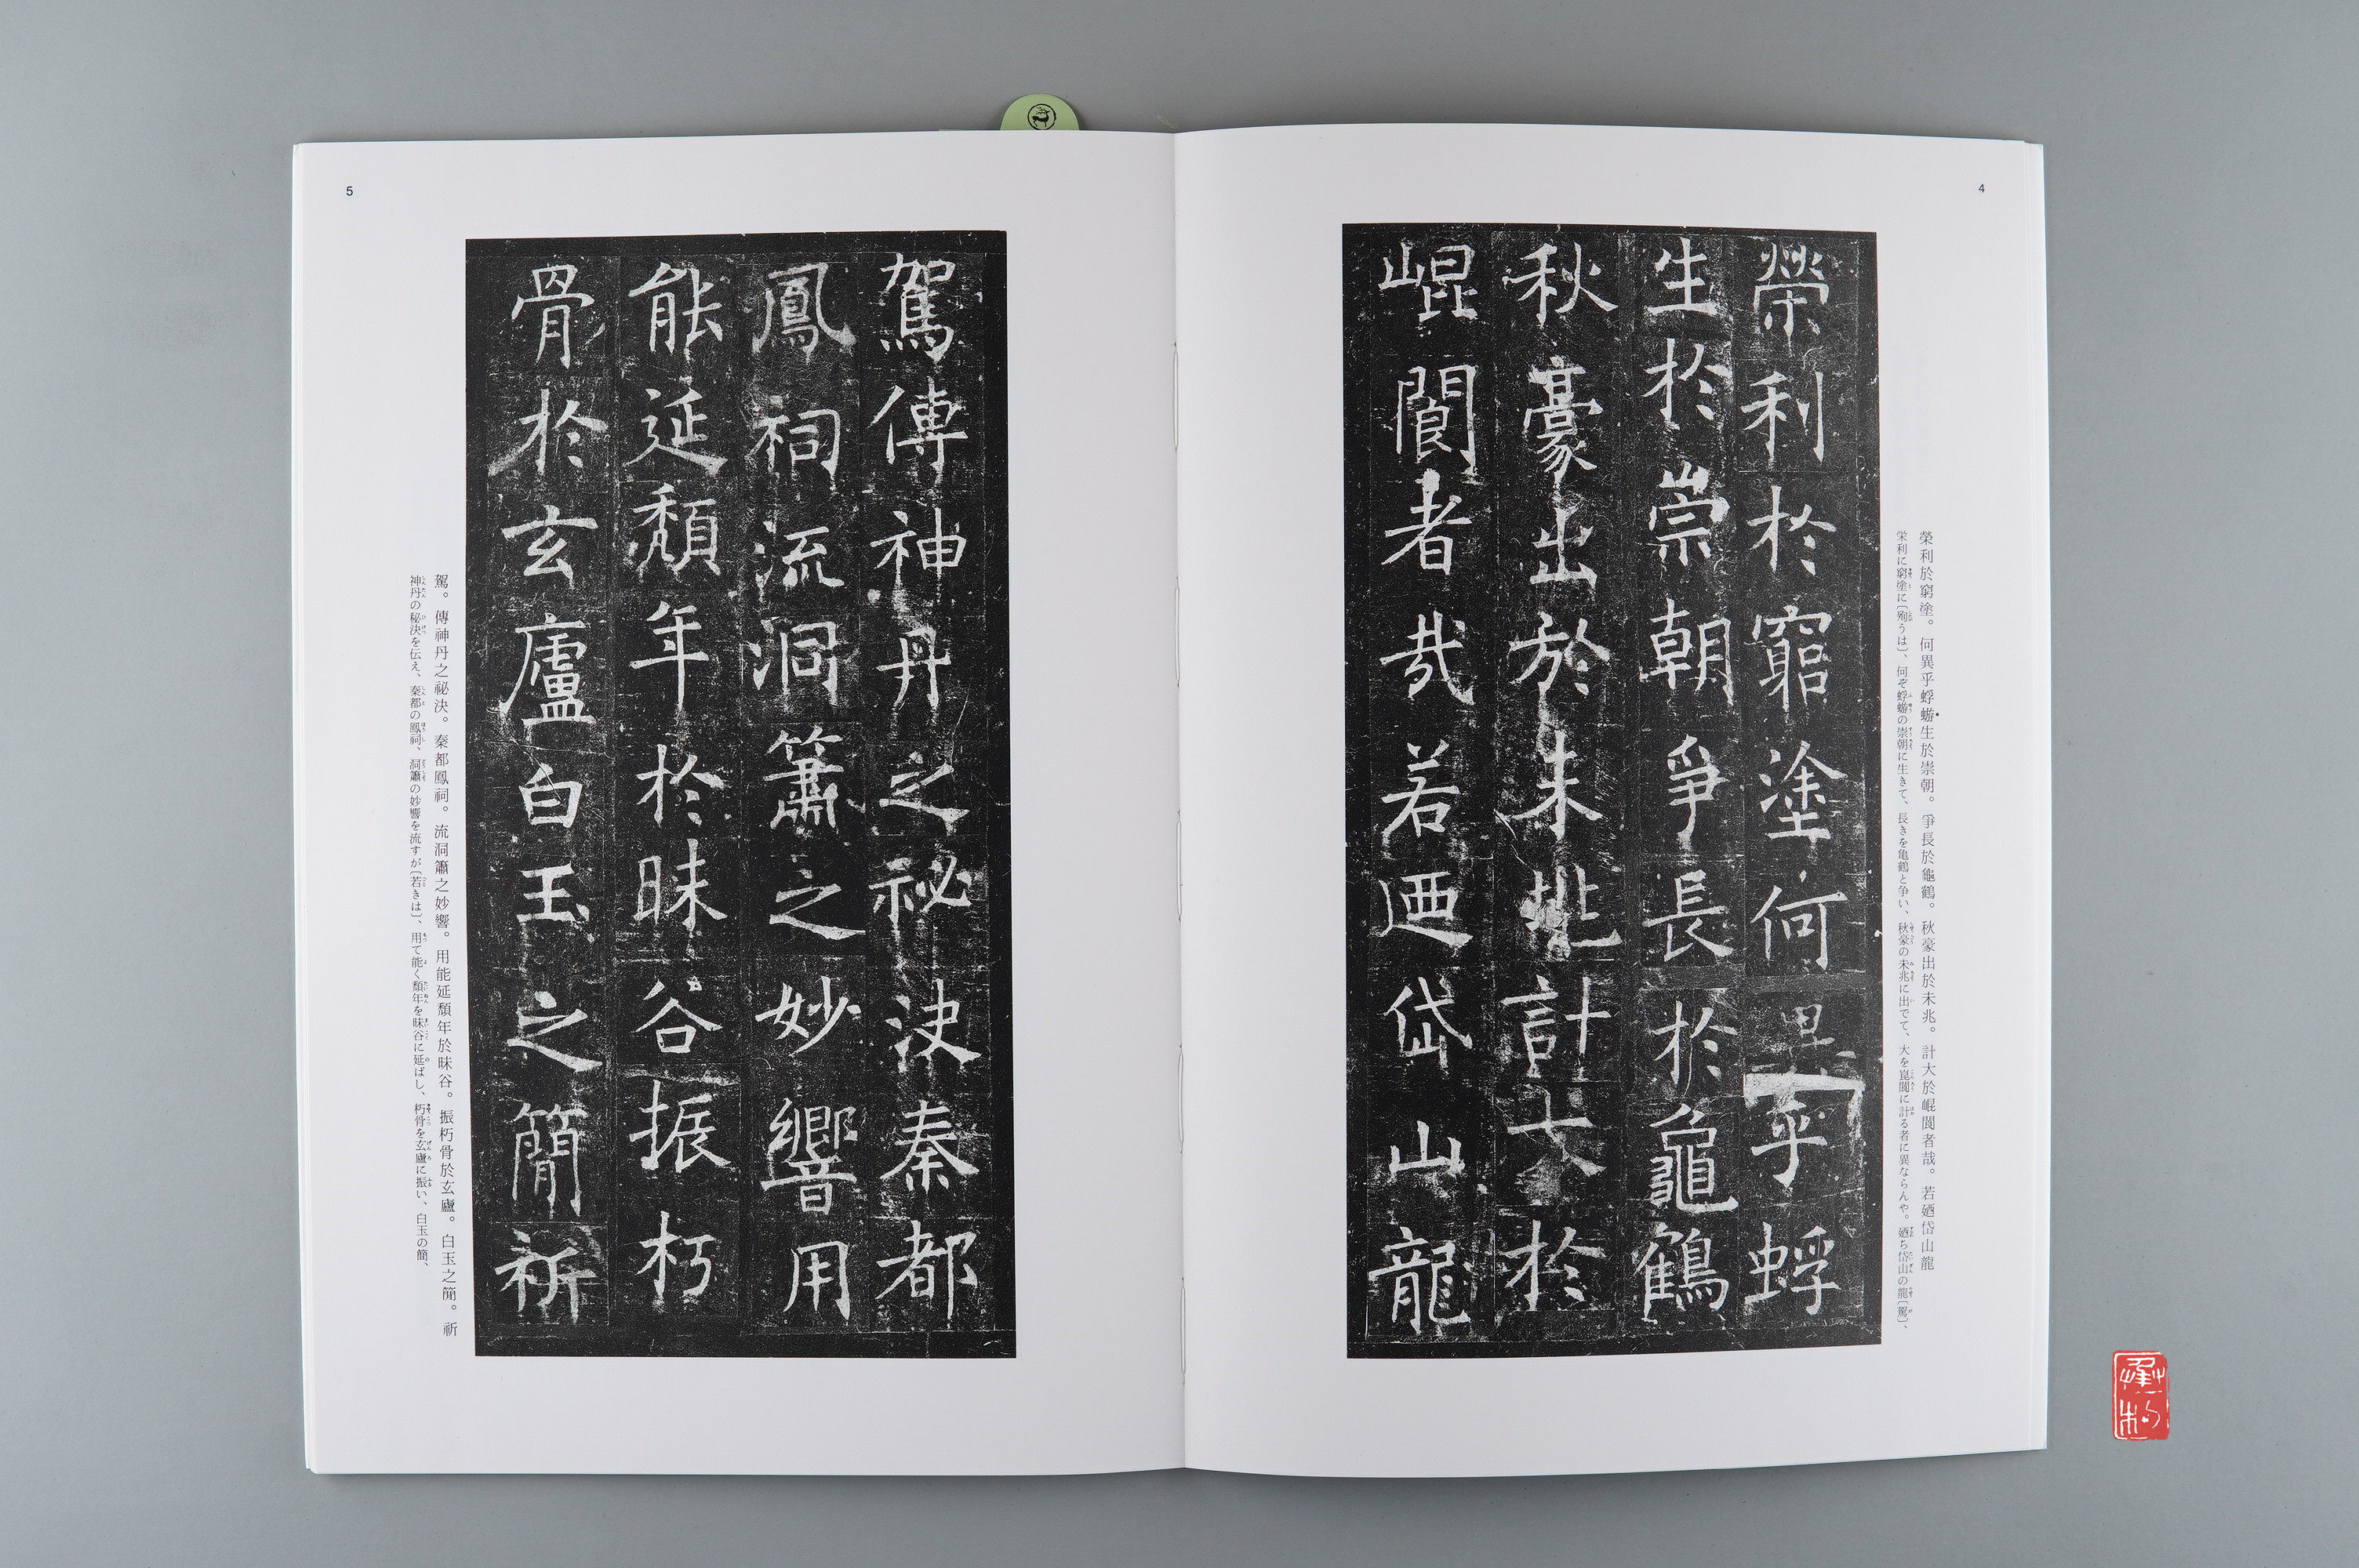 4
榮利於窮塗。何異乎蜉蝣生於崇朝。爭長於龜鶴。秋豪出於未兆。計大於崐閬者哉。若廼岱山龍
栄利に窮塗に〔殉うは〕、何ぞ蜉蝣の崇朝に生きて、長きを亀鶴と争い、秋豪の未兆に出でて、大を崑閬に計る者に異ならんや。廼ち岱山の龍〔駕〕、
榮利於窮塗何異乎蜉
生於崇朝爭長於龜鶴
秋豪出於未兆計大於
崐閬者哉若廼岱山龍
5
駕傳神丹之祕決秦都
鳳祠流洞簫之妙響用
能延頹年於昧谷振朽
骨於玄廬白玉之簡祈
駕。傳神丹之祕決。秦都鳳祠。流洞簫之妙響。用能延頹年於昧谷。振朽骨於玄廬。白玉之簡。祈
神丹の秘決を伝え、秦都の鳳祠、洞簫の妙響を流すが〔若きは〕、用て能く頹年を昧谷に延ばし、朽骨を玄廬に振い、白玉の簡、